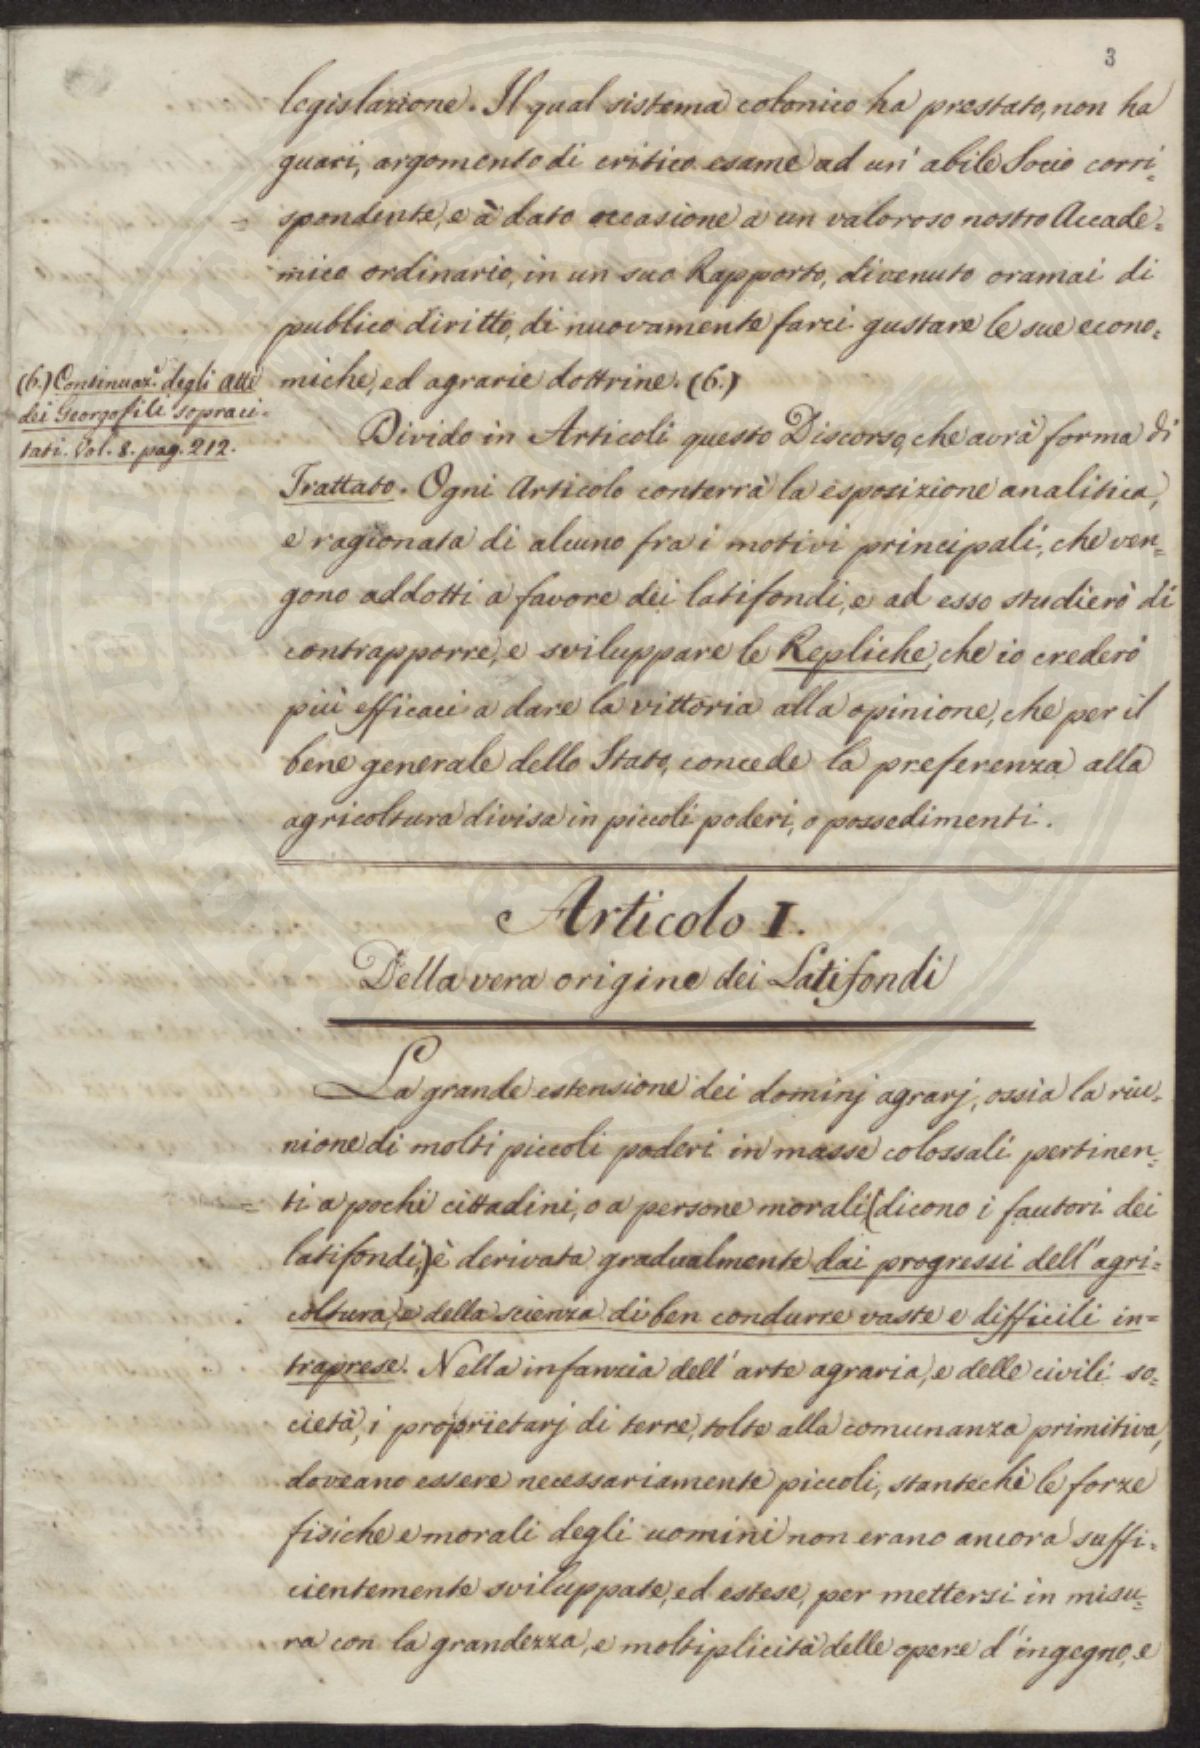 3
legislazione. Il qual sistema colonico ha prestato, non ha
guari, argomento di critico esame ad un' abile Socio corri=
spondente, e à dato occasione a un valoroso nostro Accade=
mico ordinario, in un suo Rapporto, divenuto oramai di
publico diritto, di nuovamente farci gustare le sue econo=
miche, ed agrarie dottrine. (6.)
(6.) Continuaz.e degli Atti
dei Georgofili sopraci=
tati. Vol. 8. pag. 212.
Divido in Articoli questo Discorso, che avrà forma di
Trattato. Ogni Articolo conterrà la esposizione analitica,
e ragionata di alcuno fra i motivi principali, che ven=
gono addotti a favore dei latifondi, e ad esso studierò di
contrapporre, e sviluppare le Repliche, che io crederò
più efficaci a dare la vittoria alla opinione, che per il
bene generale dello Stato, concede la preferenza alla
agricoltura divisa in piccoli poderi, o possedimenti.
Articolo I.
Della vera origine dei Latifondi
La grande estensione dei dominj agrarj, ossia la riu=
nione di molti piccoli poderi in masse colossali pertinen=
ti a pochi cittadini, o a persone morali (dicono i fautori dei
latifondi,) è derivata gradualmente dai progressi dell' agri=
coltura, e della scienza di ben condurre vaste e difficili in=
traprese. Nella infanzia dell' arte agraria, e delle civili so=
cietà, i proprietarj di terre, tolte alla comunanza primitiva,
doveano essere necessariamente piccoli, stantechè le forze
fisiche e morali degli uomini non erano ancora suffi=
cientemente sviluppate, ed estese, per mettersi in misu=
ra con la grandezza, e moltiplicità delle opere d' ingegno, e